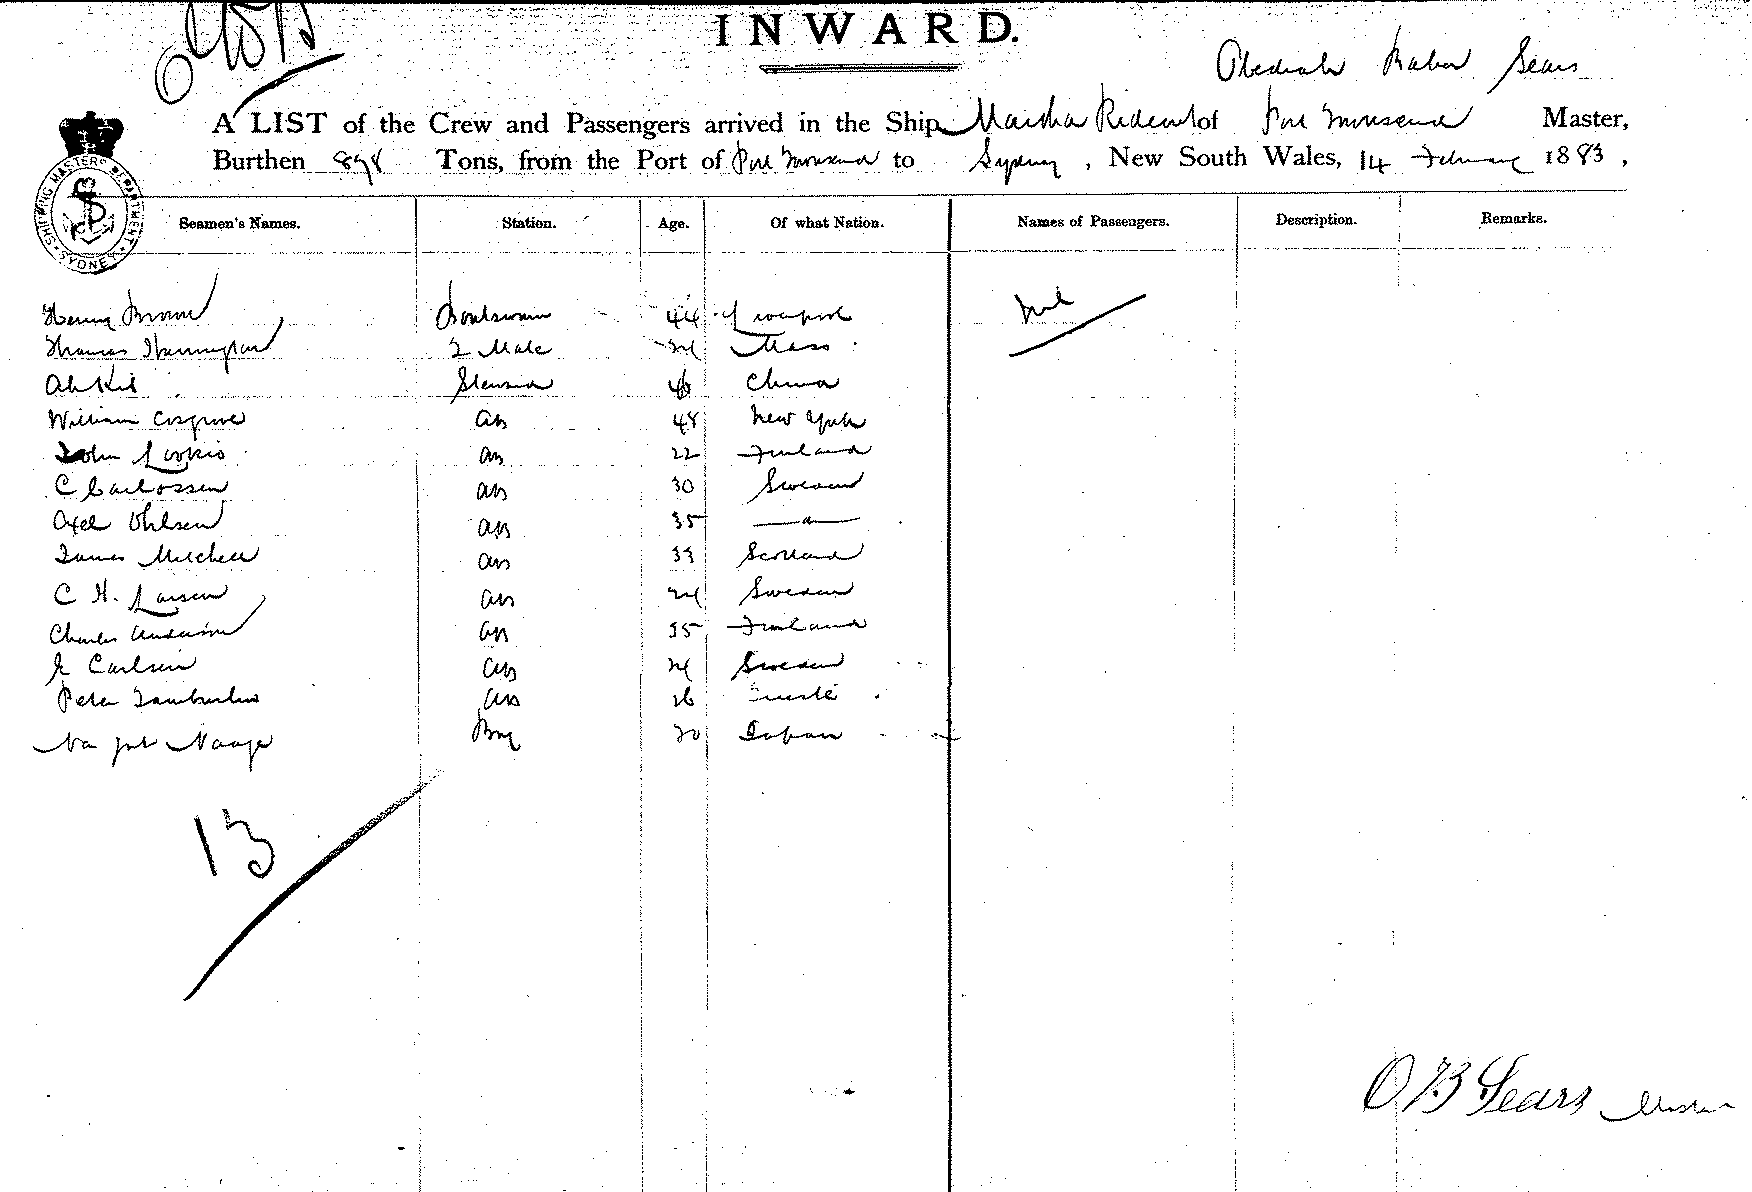 INWARD.
Obediah Baker Sears
A LIST of the Crew and Passengers arrived in the Ship Martha Rideout of Port Townsend Master,
Burthen 898 Tons, from the Port of Port Townsend to Sydney, New South Wales, 14 February 1883,
SHIPPING MASTERS DEPARTMENT SYDNEY
Seamen's Names. Station. Age. Of what Nation. Names of Passengers. Description. Remarks.
Henry Brown Boatswain 44 Liverpool Nil
Thomas Harrington 2 Mate 24 Mass
Ah Kit Steward 46 China
William Cosgrove AB 48 New York
John Lookis AB 22 Finland
C Carlossen AB 30 Sweden
Axel Ohlsen AB 35 — " —
James Mitchell AB 33 Scotland
C H. Larsen AB 24 Sweden
Charles Anderson AB 35 Finland
Carlsen AB 24 Sweden
Peter AB 26 Trieste
Boy 20 Japan
13
O B Sears Master